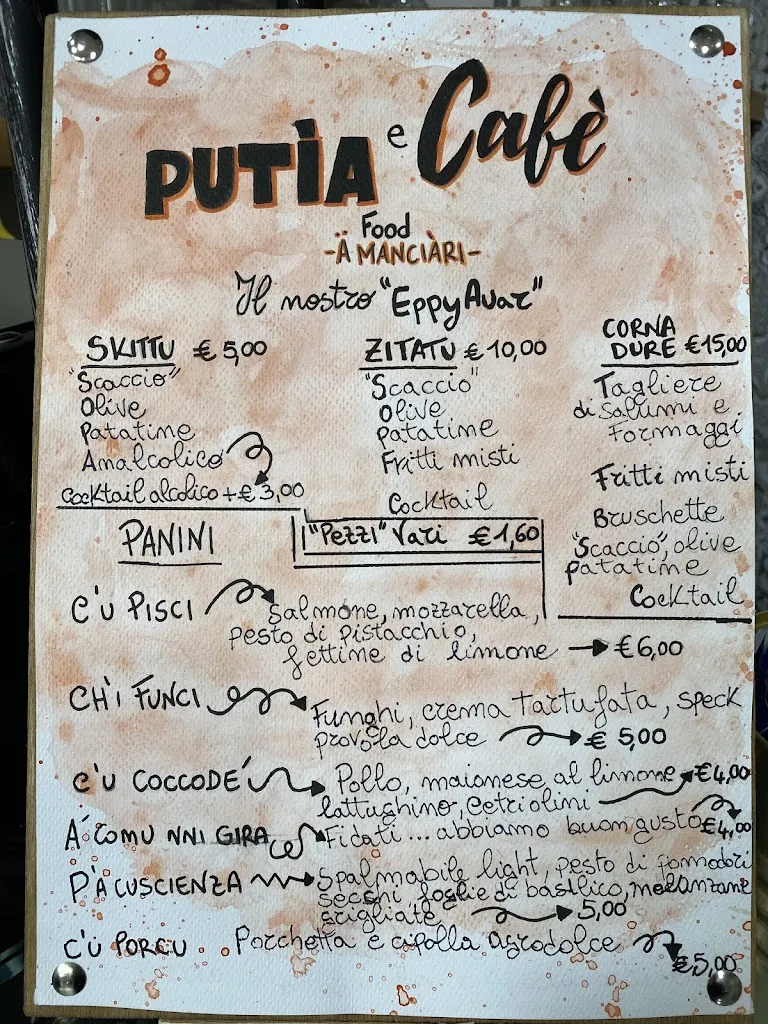 PUTÌA e Cafè
Food
-Ä MANCIÀRI-
Il nostro "EppyAuar"
SKITTU € 5,00
"Scaccio"
Olive
Patatine
Analcolico
Cocktail alcolico + € 3,00
ZITATU € 10,00
"Scaccio"
Olive
Patatine
Fritti misti
Cocktail
CORNA
DURE €15,00
Tagliere
di Salumi e
Formaggi
Fritti misti
Bruschette
"Scaccio", olive
patatine
Cocktail
"Pezzi" Vari €1,60
PANINI
C'U PISCI Salmone, mozzarella,
pesto di pistacchio,
fettine di limone → €6,00
CH'I FUNCI Funghi, crema Tartufata, speck
provola dolce € 5,00
C'U COCCODÉ Pollo, maionese al limone €4,00
lattughino, Cetriolini
A' COMU NNI GIRA Fidati... abbiamo buon gusto €4,00
P'A CUSCIENZA Spalmabile light, pesto di pomodori
secchi, foglie di basilico, melanzane
grigliate 5,00
C'U PORCU Porchetta e cipolla agrodolce
€5,00